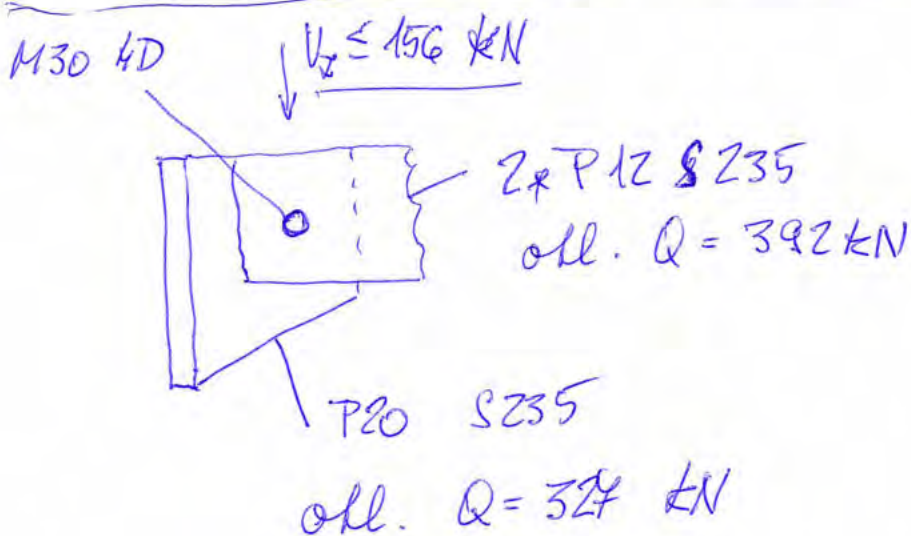 M30 4D
V_z ≤ 156 kN
2x P12 S235
otl. Q = 392 kN
P20 S235
otl. Q = 327 kN